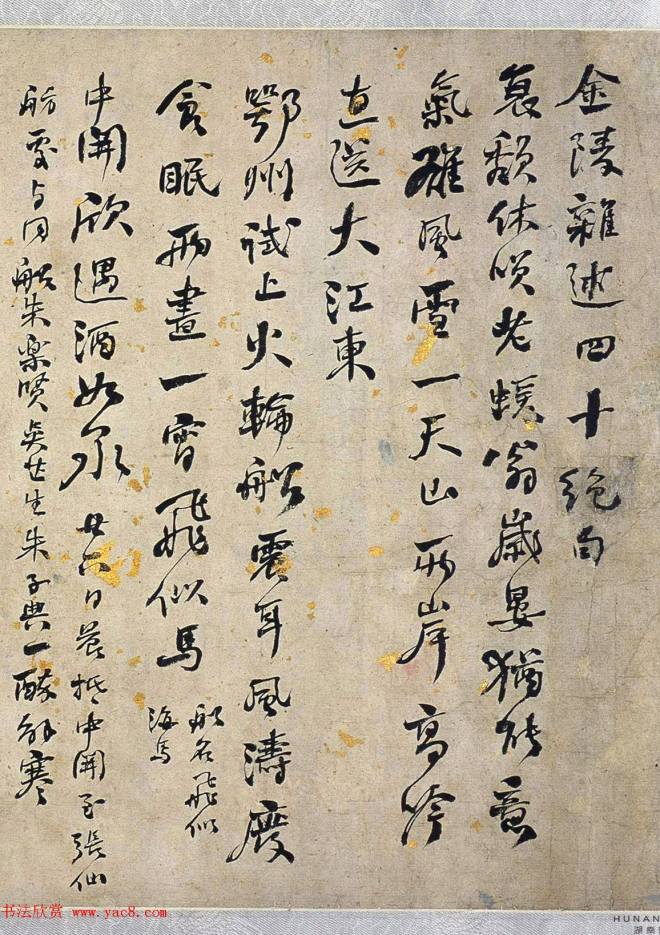 金陵雜述四十絕句
哀頹休哭老蝯翁歲晏猶能意
氣雄風雪一天山兩岸高吟
直送大江東
鄂州試上火輪船震耳風濤廢
貪眠兩晝一宵飛似馬
船名飛似
海馬
中開欣遇酒如泉廿六日晨抵中開至張仙
舫處与同船朱樂 生朱子典一醉舒寒
书法欣赏 www.yac8.com
HUNAN
湖南